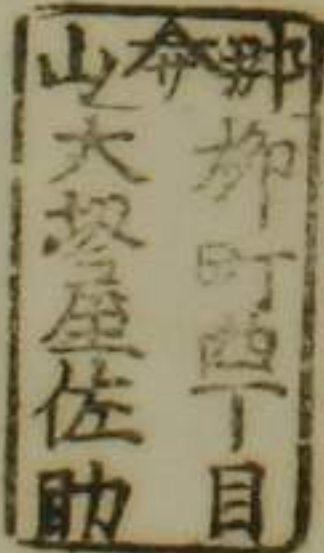 郡柳町四丁目
山大屋佐助